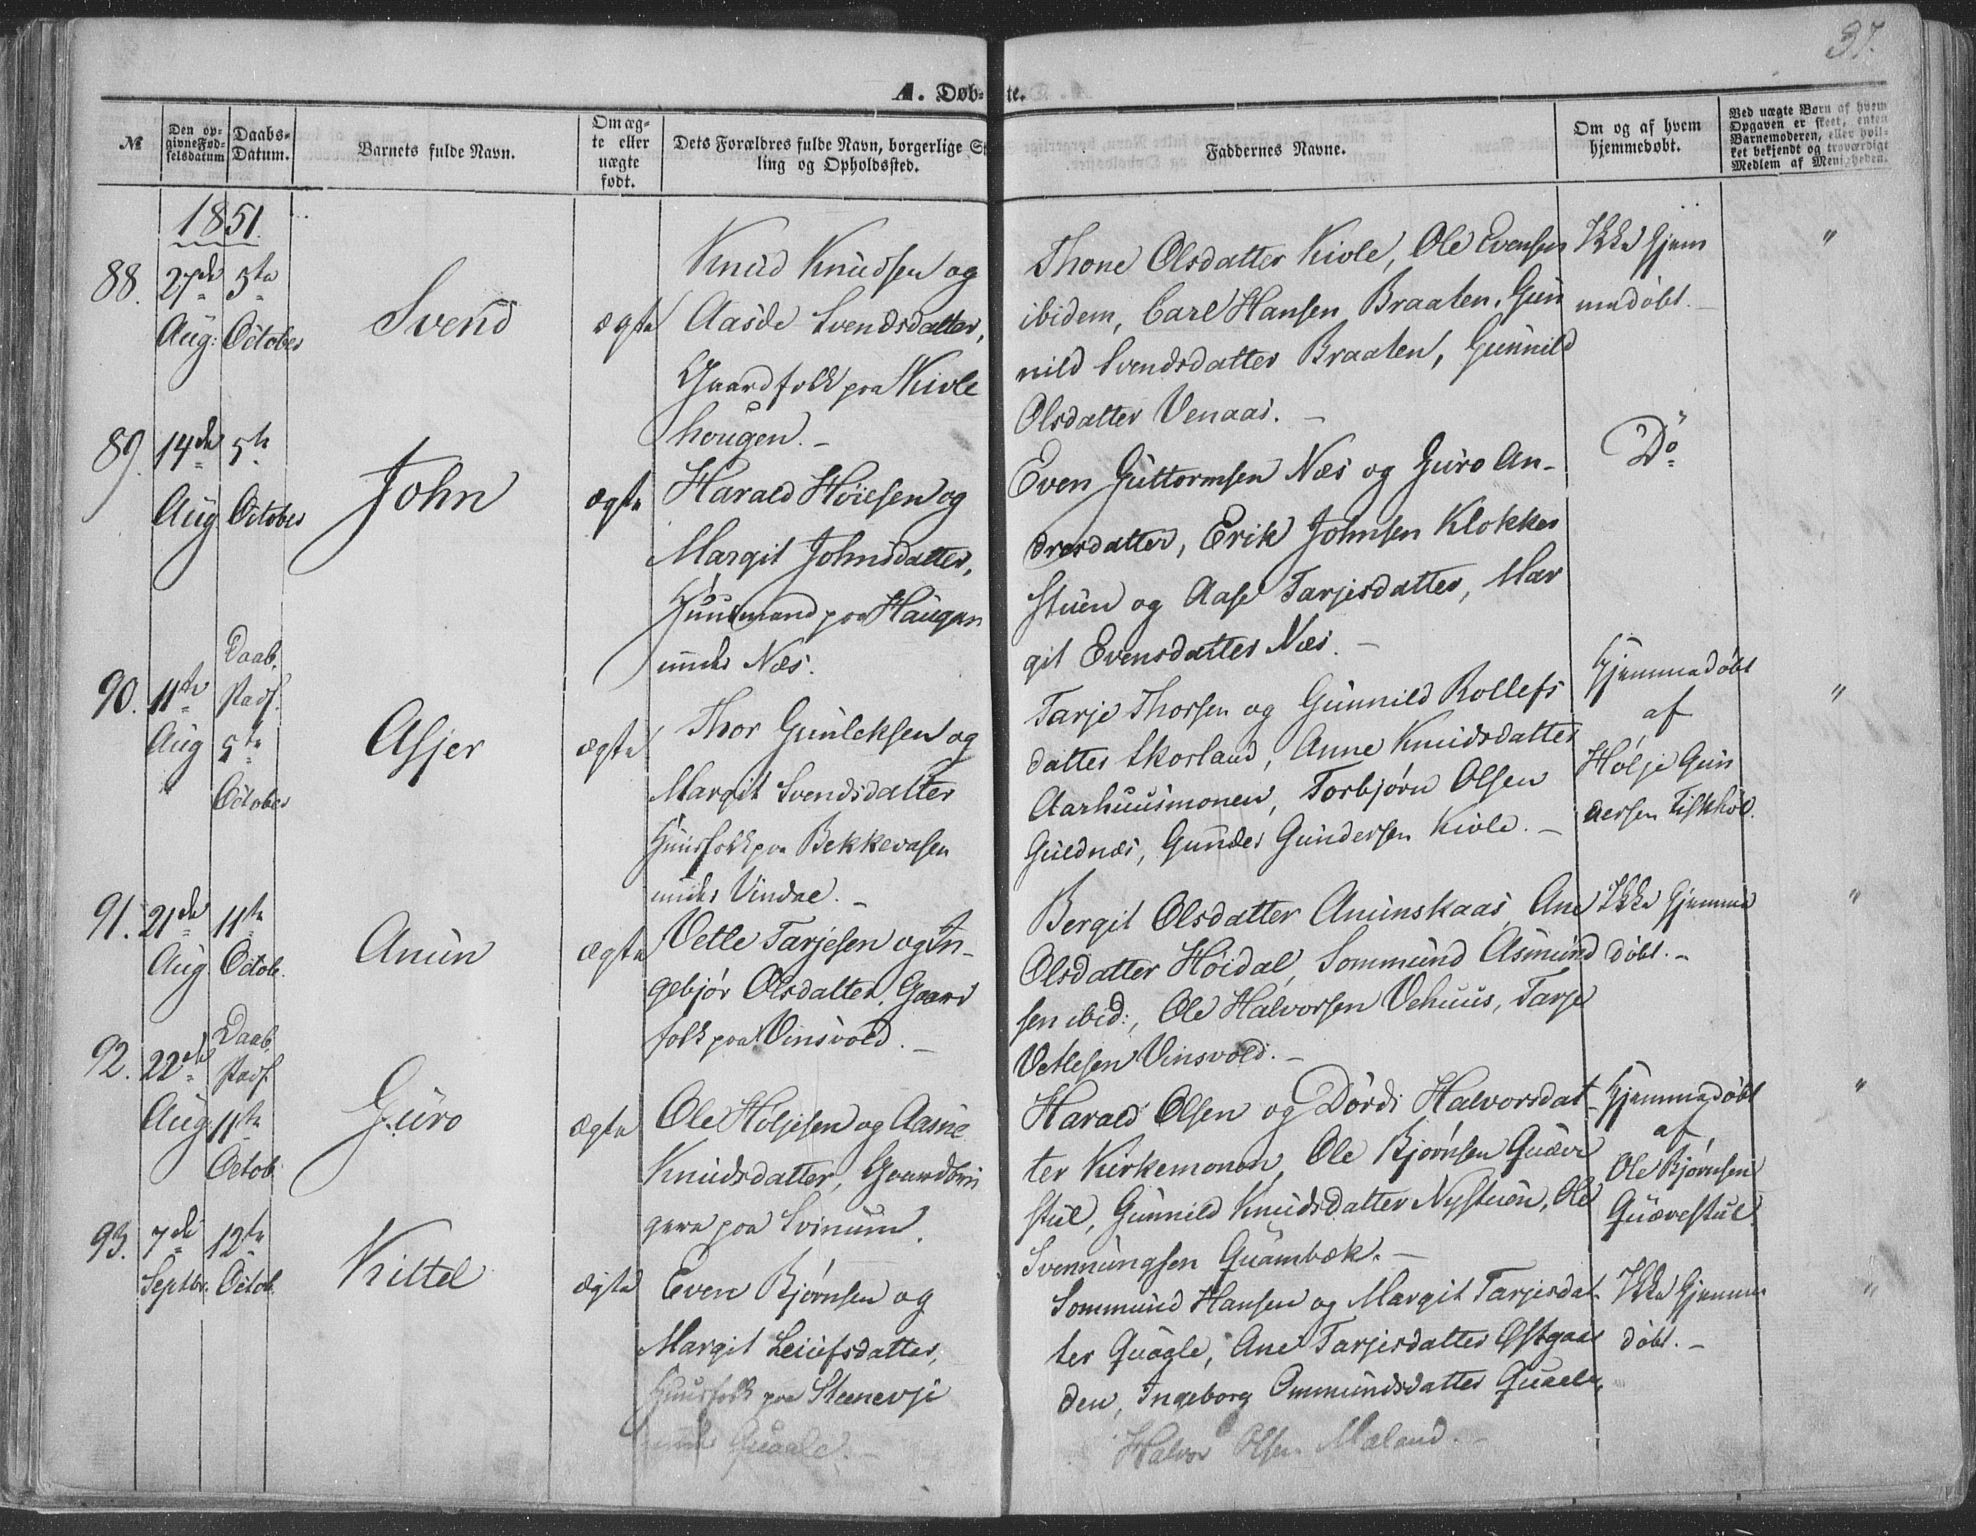 37.
A. Døb-te.
№
Den opgivne Fødselsdatum
Daabs-Datum.
Barnets fulde Navn.
Om ægte eller uægte født.
Dets Forældres fulde Navn, borgerlige Stling og Opholdssted.
Faddernes Navne.
Om og af hvem hjemmedøbt.
Ved uægte Børn af hvem Opgaven er skeet, enten Barnemoderen, eller hvilket bekjendt og troværdigt Medlem af Menigheden.
1851.
88.
27de
Aug:
5te
October
Svend
ægte
Knud Knudsen og
Aasde Svendsdatter,
Gaardfolk paa Kivle
hougen. -
Thone Olsdatter Kivle, Ole Evensen
ibidem, Carl Hansen Braaten, Gun
nild Svendsdatter Braaten, Gunnild
Olsdatter Venaas. -
Ikke Hjem
medøbt. -
"
89.
14de
Aug
5te
October
John
ægte
Harald Høiesen og
Margit Johnsdatter,
Huusmand paa Haugen
under Næs.
Even Guttormsen Næs og Guro An-
dresdatter, Erik Johnsen Klokker
stuen og Aase Tarjesdatter, Mar
git Evensdatter Næs. -
Do
90.
11te
Aug
Daab.
Stadf.
5te
October
Asjer
ægte
Thor Gunleksen og
Margit Svendsdatter
Huusfolk paa Bekkevasen
under Vindae. -
Tarje Thorsen og Gunnild Rollefs
datter Skorland, Anne Knudsdatter
Aarhuusmonen, Torbjørn Olsen
Guldnæs, Gunder Gundersen Kivle. -
Hjemmedøbt
af
Holje Gun
dersen Fiskhøl.
"
91.
21de
Aug
11te
Octob.
Anun
ægte
Vetle Tarjesen og In-
gebjør Olsdatter, Gaard
folk paa Vinsvold. -
Bergit Olsdatter Anunskaas, Ane
Olsdatter Høidal, Sommund Asmund
sen ibid:, Ole Halvorsen Vehuus, Tarje
Vetlesen Vinsvold. -
Ikke Hjemme
døbt. -
"
92.
22de
Aug
Daab.
Stadf.
11te
Octob.
Guro
ægte
Ole Holjesen og Aasne
Knudsdatter, Gaardbru
gere paa Svinum.
Harald Olsen og Dordi Halvorsdat
ter Kirkemonen, Ole Bjørnsen Quæve
stul, Gunnild Knudsdatter Nystuen, Ole
Svennungsen Quambæk. -
Hjemmedøbt
af
Ole Bjørnsen
Quævestul.
"
93.
7de
Septbr.
12te
Octob.
Kittel
ægte
Even Bjørnsen og
Margit Leiufsdatter,
Huusfolk paa Steenevje
under Quaale. -
Sommund Hansen og Margit Tarjesdat
ter Quaale, Ane Tarjesdatter Østgaar
den, Ingeborg Ommundsdatter Quaale,
Halvor Olsen Mæland. -
Ikke Hjemme
døbt. -
"